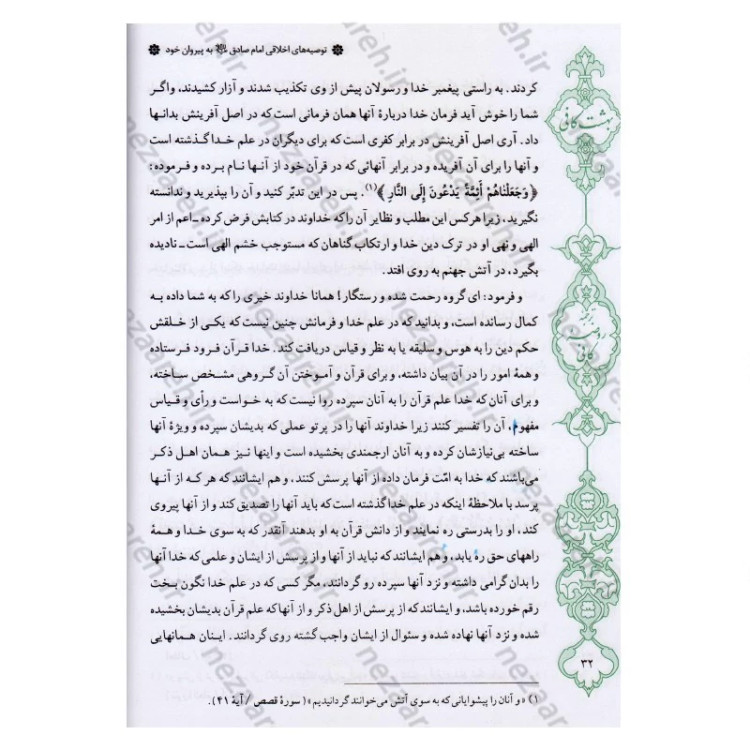 توصیه‌های اخلاقی امام صادق ﷷ به پیروان خود
کردند. به راستی پیغمبر خدا و رسولان پیش از وی تکذیب شدند و آزار کشیدند، و اگر
شما را خوش آید فرمان خدا دربارهٔ آنها همان فرمانی است که در اصل آفرینش بدانها
داد. آری اصل آفرینش در برابر کفری است که برای دیگران در علم خدا گذشته است
و آنها را برای آن آفریده و در برابر آنهائی که در قرآن خود از آنها نام برده و فرموده:
﴿وَجَعَلْنَاهُمْ أَئِمَّةً يَدْعُونَ إِلَى النَّارِ﴾(۱). پس در این تدبّر کنید و آن را بپذیرید و ندانسته
نگیرید، زیرا هرکس این مطلب و نظایر آن را که خداوند در کتابش فرض کرده ـ اعم از امر
الهی و نهی او در ترک دین خدا و ارتکاب گناهان که مستوجب خشم الهی است ـ نادیده
بگیرد، در آتش جهنم به روی افتد.
و فرمود: ای گروه رحمت شده و رستگار! همانا خداوند خیری را که به شما داده به
کمال رسانده است، و بدانید که در علم خدا و فرمانش چنین نیست که یکی از خلقش
حکم دین را به هوس و سلیقه یا به نظر و قیاس دریافت کند. خدا قرآن فرود فرستاده
و همهٔ امور را در آن بیان داشته، و برای قرآن و آموختن آن گروهی مشخص ساخته،
و برای آنان که خدا علم قرآن را به آنان سپرده روا نیست که به خواست و رأی و قیاس
مفهوم، آن را تفسیر کنند زیرا خداوند آنها را در پرتو عملی که بدیشان سپرده و ویژهٔ آنها
ساخته بی‌نیازشان کرده و به آنان ارجمندی بخشیده است و اینها نیز همان اهل ذکر
می‌باشند که خدا به امّت فرمان داده از آنها پرسش کنند، و هم ایشانند که هر که از آنها
پرسد با ملاحظهٔ اینکه در علم خدا گذشته است که باید آنها را تصدیق کند و از آنها پیروی
کند، او را بدرستی ره نمایند و از دانش قرآن به او بدهند آنقدر که به سوی خدا و همهٔ
راههای حق ره یابد، و هم ایشانند که نباید از آنها و از پرسش از ایشان و علمی که خدا آنها
را بدان گرامی داشته و نزد آنها سپرده رو گردانند، مگر کسی که در علم خدا نگون بخت
رقم خورده باشد، و ایشانند که از پرسش از اهل ذکر و از آنها که علم قرآن بدیشان بخشیده
شده و نزد آنها نهاده شده و سئوال از ایشان واجب گشته روی گردانند. اینان همانهایی
۱) «و آنان را پیشوایانی که به سوی آتش می‌خوانند گردانیدیم» (سورهٔ قصص / آیهٔ ۴۱).
بهشت کافی
کافی
۳۲
nezaareh.ir